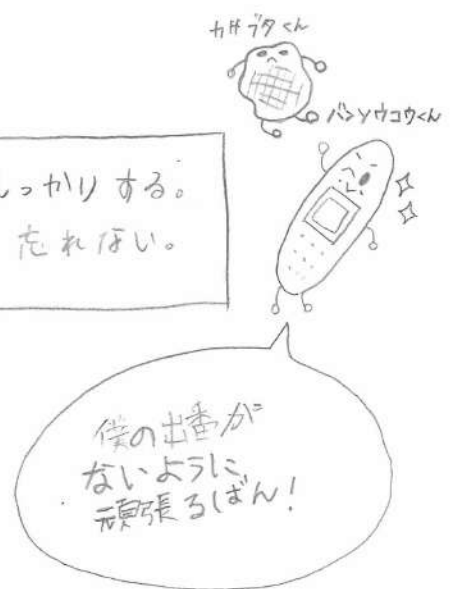 カサブタくん
バンソウコウくん
しっかりする。
忘れない。
僕の出番が
ないように
頑張るばん!